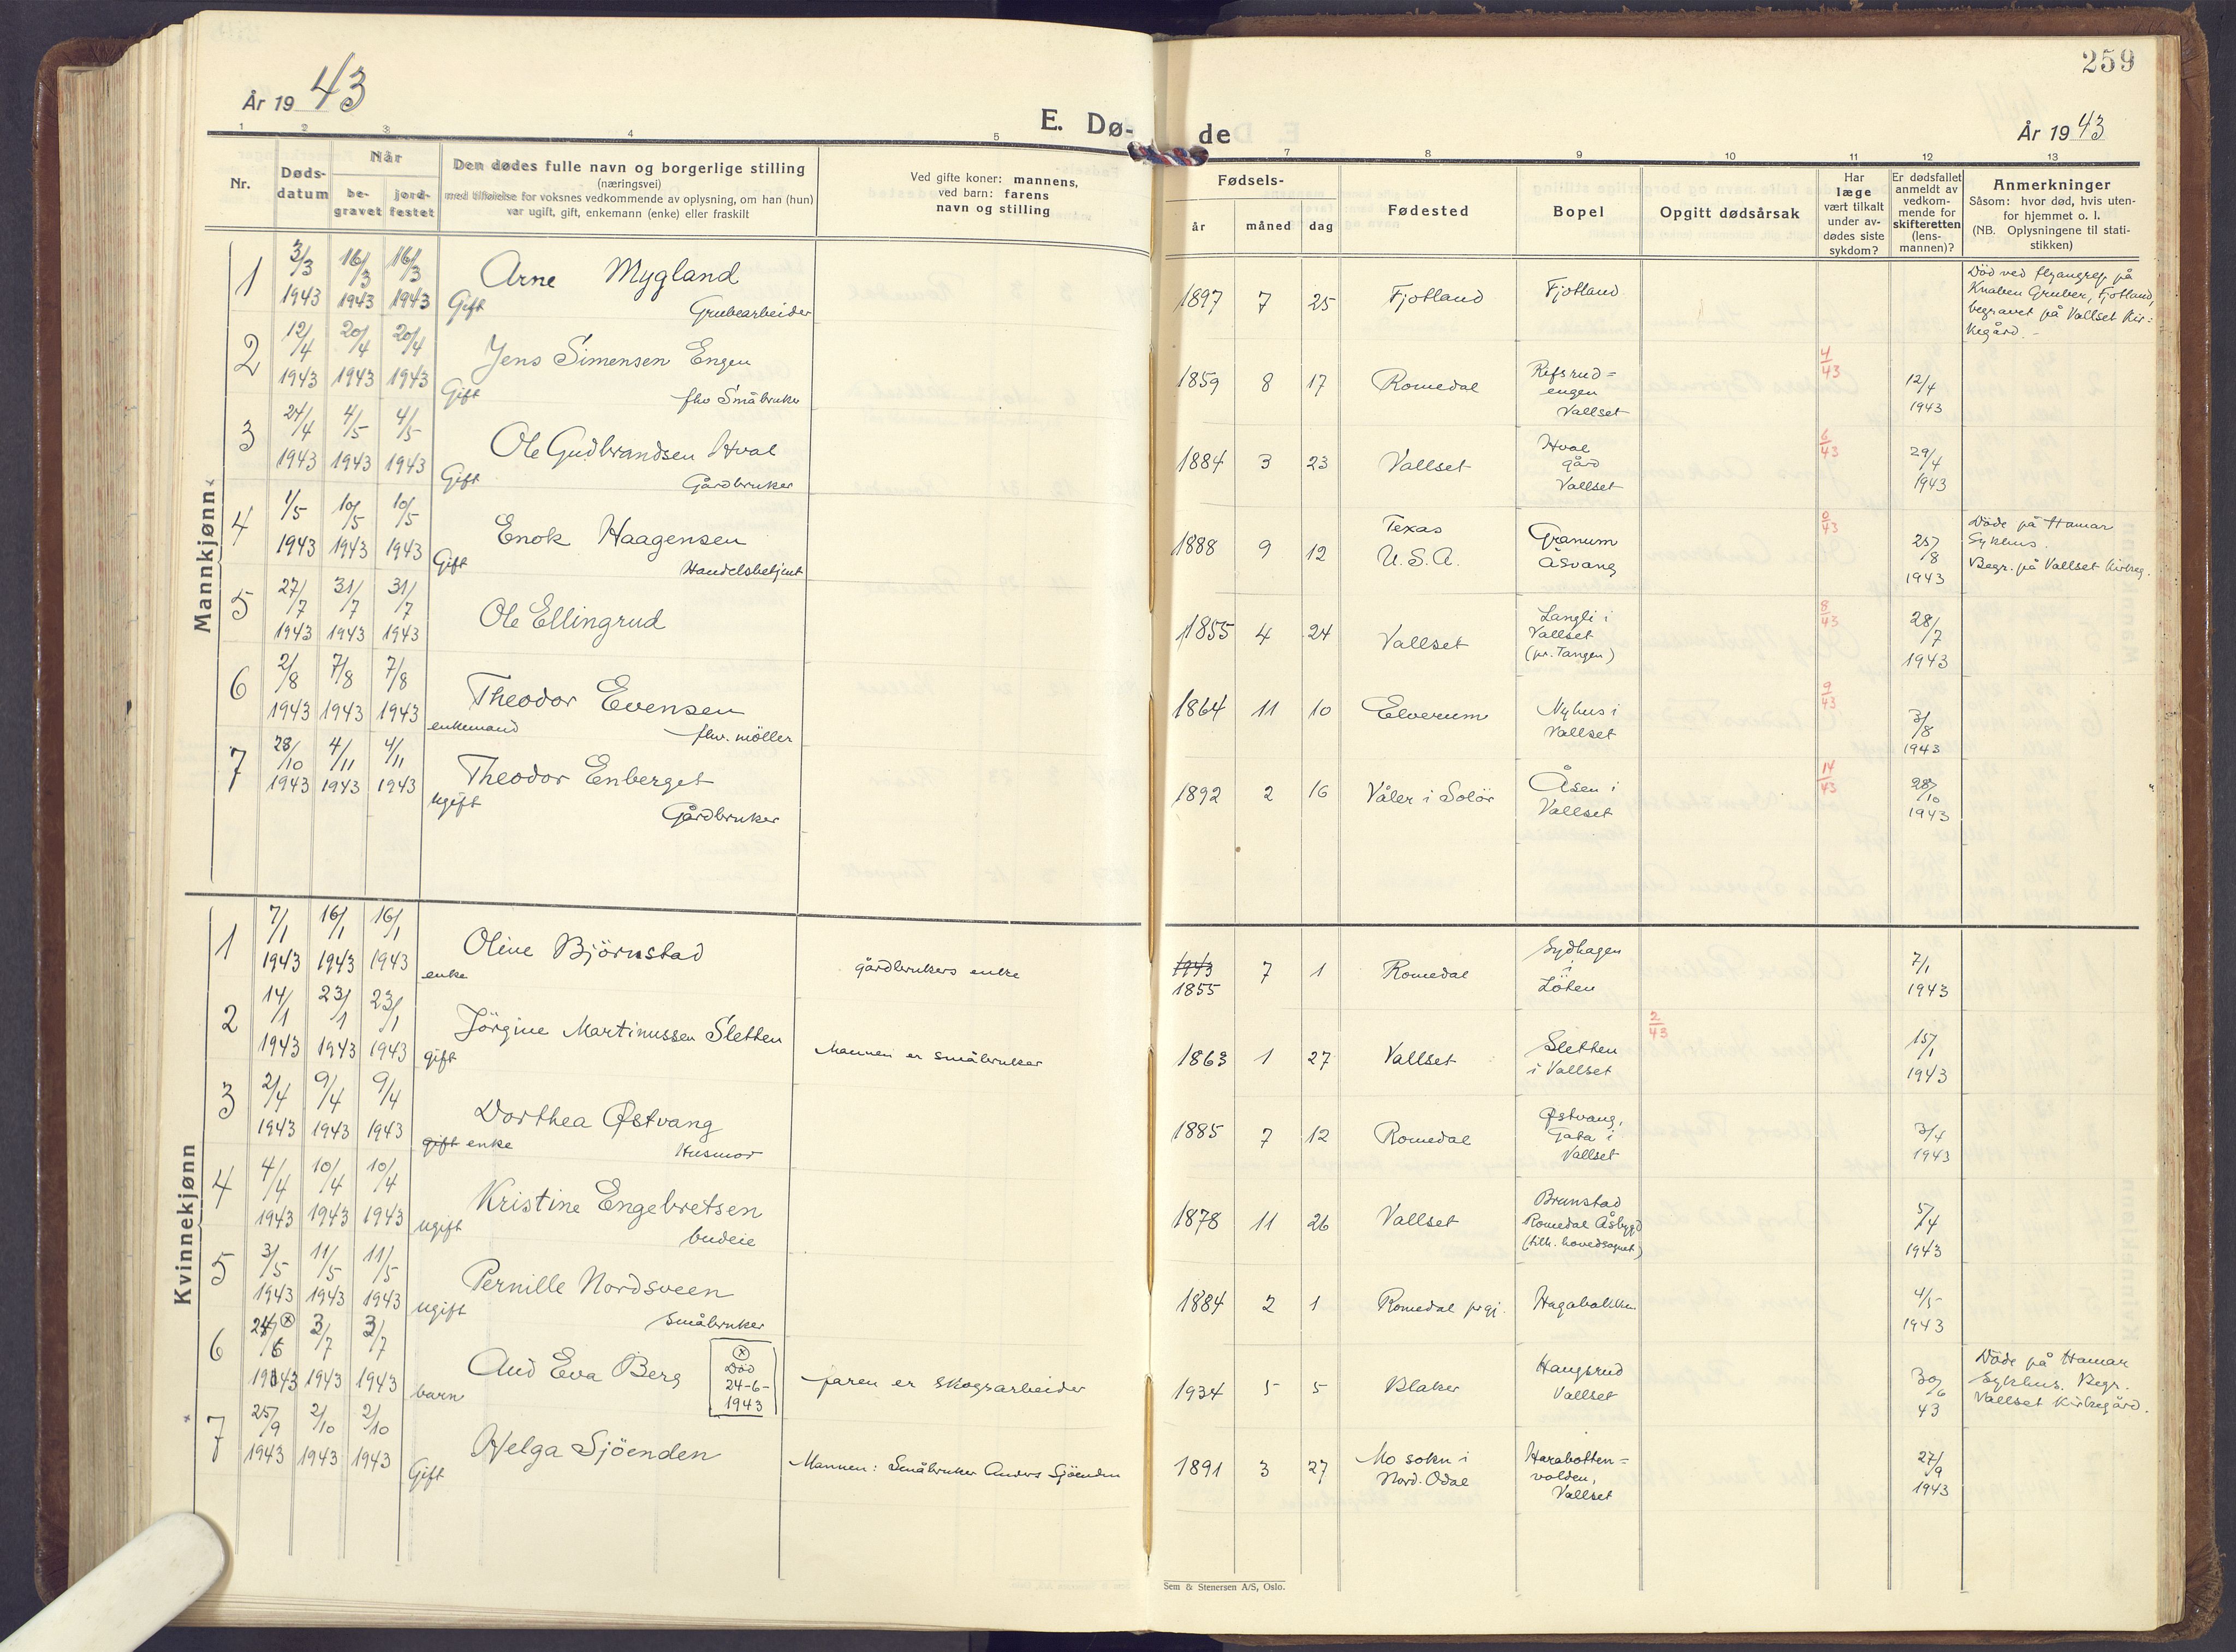 259
År 1943
E. Dø-
de
År 1943
1 2 3 4 5 7 8 9 10 11 12 13
Nr.
Døds-
datum
Når
be-
gravet
jord-
festet
Den dødes fulle navn og borgerlige stilling
(næringsvei)
med tilføielse for voksnes vedkommende av oplysning, om han (hun)
var ugift, gift, enkemann (enke) eller fraskilt
Ved gifte koner: mannens,
ved barn: farens
navn og stilling
Fødsels-
år måned dag
Fødested
Bopel
Opgitt dødsårsak
Har
læge
vært tilkalt
under av-
dødes siste
sykdom?
Er dødsfallet
anmeldt av
vedkom-
mende for
skifteretten
(lens-
mannen)?
Anmerkninger
Såsom: hvor død, hvis uten-
for hjemmet o. l.
(NB. Oplysningene til stati-
stikken)
Mannkjønn
1 3/3 1943 16/3 1943 16/3 1943
Arne Mygland
Gift Grubearbeider
1897 7 25 Fjotland Fjotland
Død ved flyangrep på
Knaben Gruber, Fjotland,
begravet på Vallset Kir-
kegård.
2 12/4 1943 20/4 1943 20/4 1943
Jens Simensen Engen
Gift fhv Småbruker
1859 8 17 Romedal
Refsrud=
engen
Vallset
4/43
12/4 1943
3 24/4 1943 4/5 1943 4/5 1943
Ole Gudbrandsen Hval
Gift Gårdbruker
1884 3 23 Vallset
Hval
gård
Vallset
6/43
29/4 1943
4 1/5 1943 10/5 1943 10/5 1943
Enok Haagensen
Gift Handelsbetjent
1888 9 12
Texas
U.S.A.
Granum
Åsvang
25/8 1943
Døde på Hamar
Sykehus.
Begr. på Vallset Kirkeg.
5 27/7 1943 31/7 1943 31/7 1943
Ole Ellingrud
1855 4 24 Vallset
Langli i
Vallset
(pr. Tangen)
8/43
28/7 1943
6 2/8 1943 7/8 1943 7/8 1943
Theodor Evensen
enkemand fhv. möller
1864 11 10 Elverum
Nyhus i
Vallset
9/43
3/8 1943
7 28/10 1943 4/11 1943 4/11 1943
Theodor Enberget
ugift Gårdbruker
1892 2 16 Våler i Solör
Åsen i
Vallset
14/43
28/10 1943
Kvinnekjønn
1 7/1 1943 16/1 1943 16/1 1943
Oline Björnstad
enke
gårdbrukers enke
1943
1855 7 1 Romedal
Sydhagen
i
Löten
7/1 1943
2 14/1 1943 23/1 1943 23/1 1943
Jörgine Martinussen Sletten
gift
Mannen er småbruker
1863 1 27 Vallset
Sletten
i Vallset
2/43
15/1 1943
3 2/4 1943 9/4 1943 9/4 1943
Dorthea Østvang
gift enke Husmor
1885 7 12 Romedal
Østvang,
Gata i
Vallset
3/4 1943
4 4/4 1943 10/4 1943 10/4 1943
Kristine Engebretsen
ugift budeie
1878 11 26 Vallset
Brunstad
Romedal Åsbygd
(tilh. hovedsognet)
5/4 1943
5 3/5 1943 11/5 1943 11/5 1943
Pernille Nordsveen
ugift Småbruker
1884 2 1 Romedal prgj. Hagabakken
4/5 1943
6 24/6 ⊗ 1943 3/7 1943 3/7 1943
Aud Eva Berg
barn
⊗
Død
24-6-
1943
faren er skogsarbeider
1934 5 5 Blaker
Haugsrud
Vallset
30/6 43
Døde på Hamar
Sykehus. Begr.
Vallset Kirkegård.
7 25/9 1943 2/10 1943 2/10 1943
Helga Sjöenden
Gift
Mannen: Småbruker Anders Sjöenden
1891 3 27
Mo sokn i
Nord-Odal
Harabotten=
volden,
Vallset
27/9 1943
Sem & Stenersen A/S, Oslo.